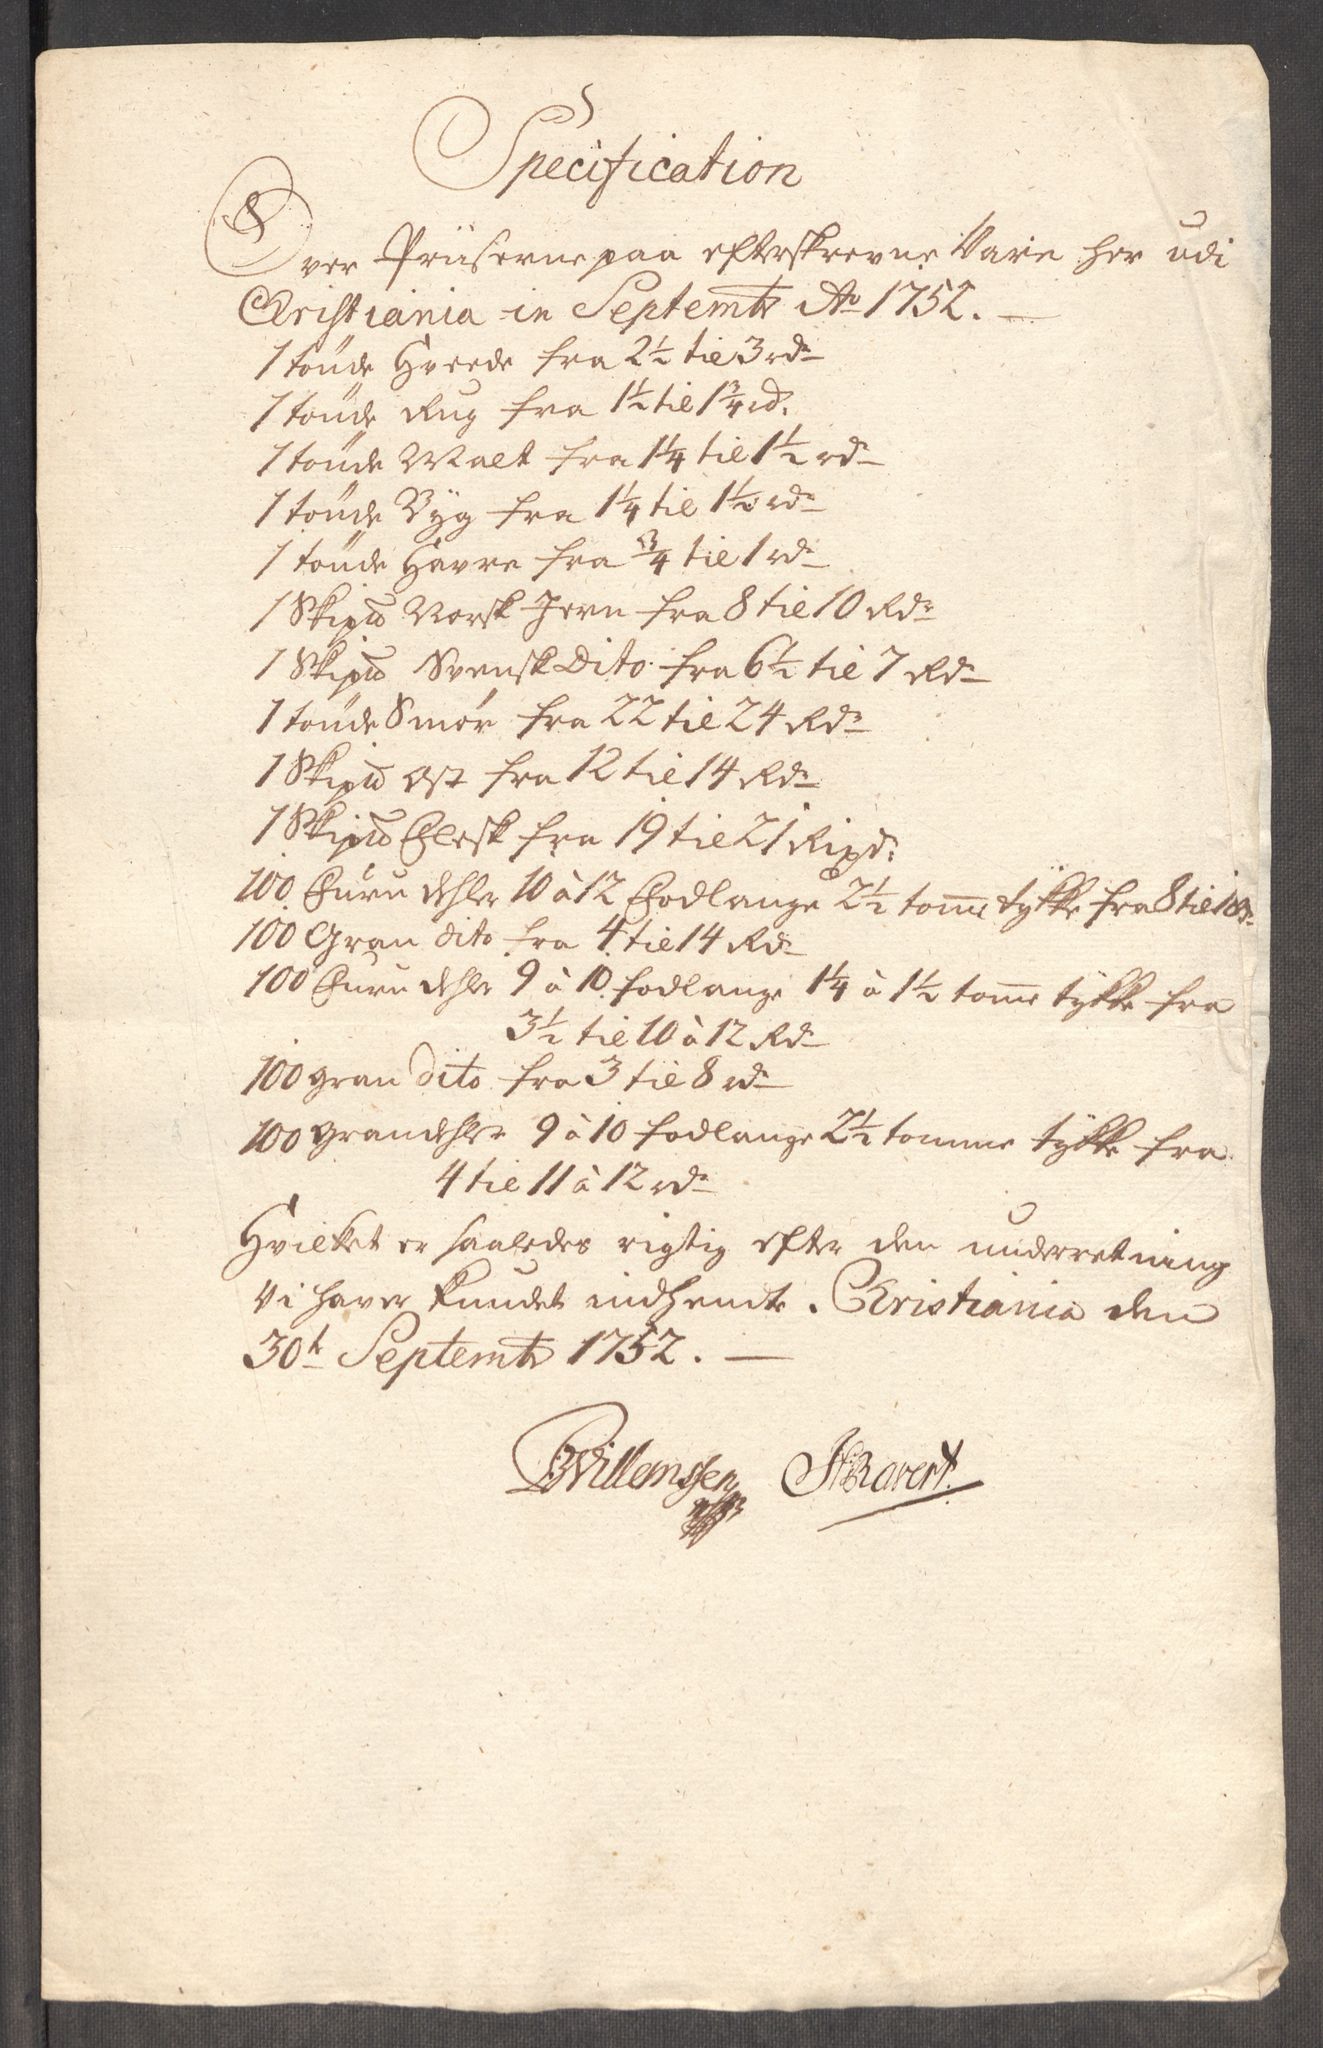 Specification
Over Priiserne paa efterskrevne Vare her udi
Christiania in Septembr Ao 1752. —
1 tönde Hvede fra 2½ til 3 rdr
1 tönde Rug fra 1½ til 1¾ rd.
1 tönde Malt fra 1¼ til 1½ rdr
1 tönde Byg fra 1¼ til 1½ rdr
1 tönde Havre fra ¾ til 1 rdr
1 Skipd Norsk Jern fra 8 til 10 Rdr
1 Skipd Svensk Dito fra 6½ til 7 Rdr
1 tönde Smör fra 22 til 24 Rdr
1 Skipd Ost fra 12 til 14 Rdr
1 Skipd Flesk fra 19 til 21 Rixdr
100 Furu dehler 10 à 12 Fodlange 2½ tomme tykke fra 8 til
100 Gran dito fra 4 til 14 Rdr
100 Furu dehler 9 à 10 fodlange 1¼ à 1½ tomme tykke fra
3½ til 10 à 12 Rdr
100 gran dito fra 3 til 8 rdr
100 grandehler 9 à 10 fodlange 2½ tomme tykke fra
4 til 11 à 12 rdr
Hvilket er saaledes rigtig efter den underretning
Vi haver kundet indhendte. Christiania den
30t Septembr 1752. —
Willemssen Ravert